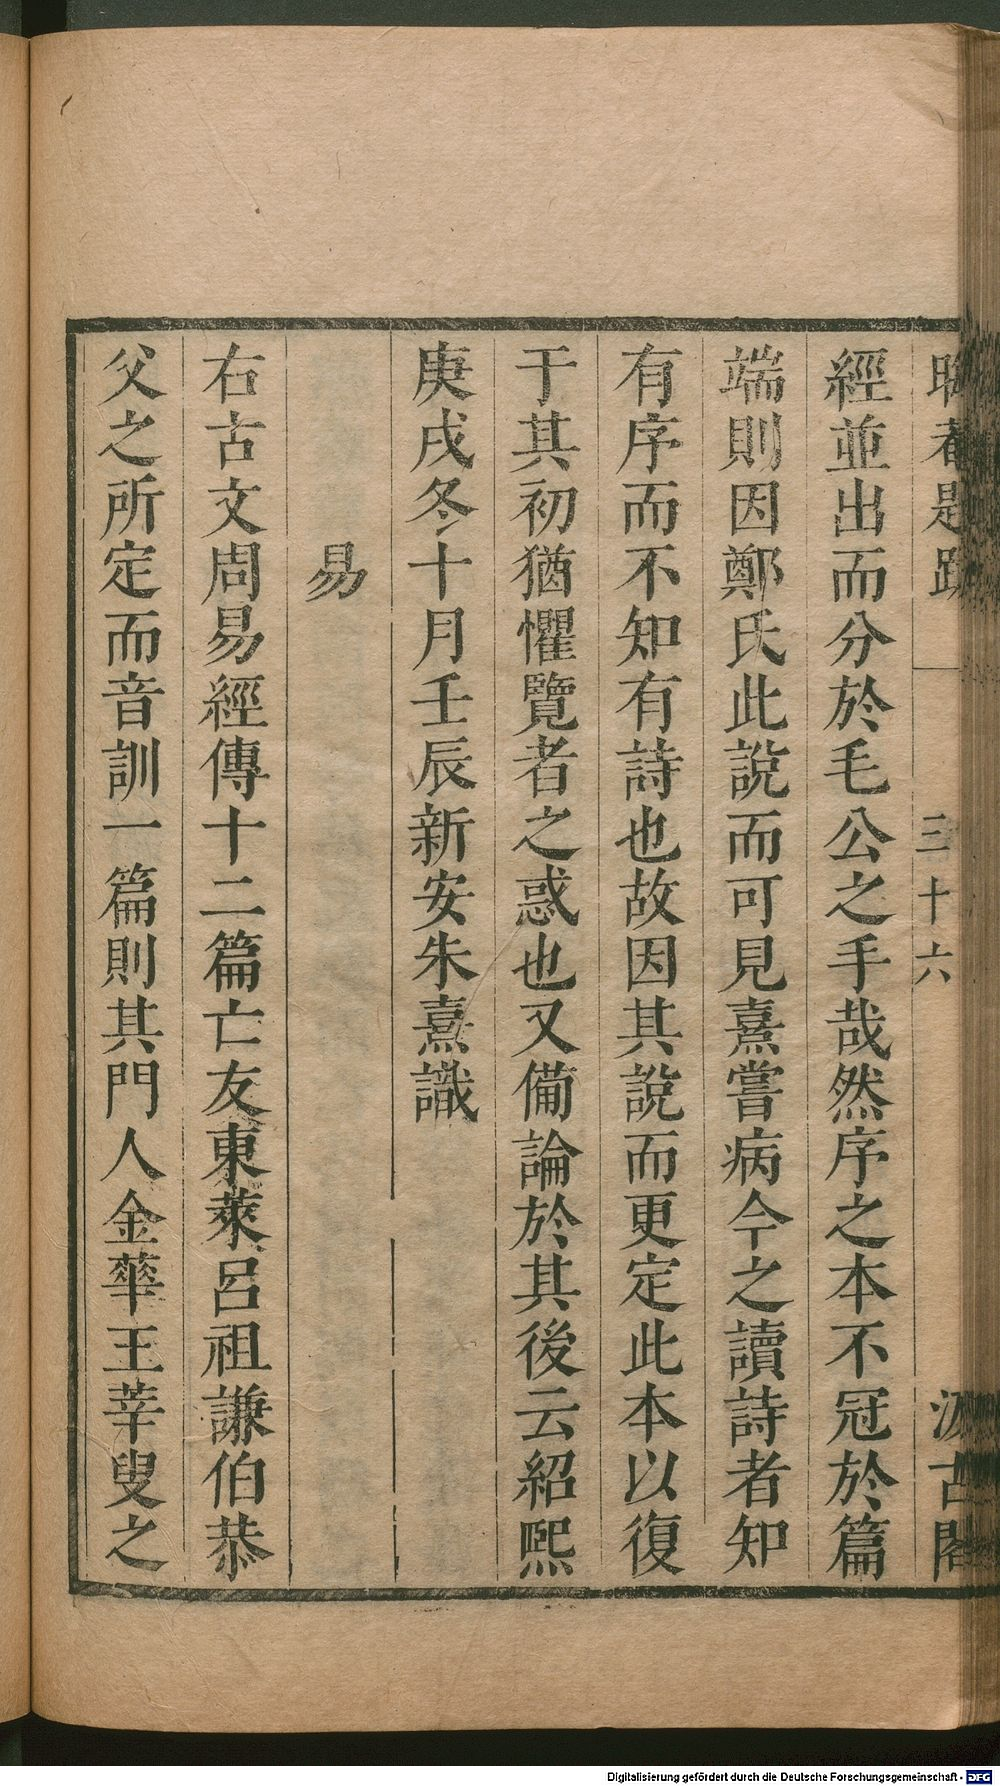 晦菴題跋
三十六
汲古閣
經並出而分於毛公之手哉然序之本不冠於篇
端則因鄭氏此說而可見熹嘗病今之讀詩者知
有序而不知有詩也故因其說而更定此本以復
于其初猶懼覽者之惑也又備論於其後云紹熙
庚戌冬十月壬辰新安朱熹識
易
右古文周易經傳十二篇亡友東萊呂祖謙伯恭
父之所定而音訓一篇則其門人金華王莘叟之
Digitalisierung gefördert durch die Deutsche Forschungsgemeinschaft - DFG